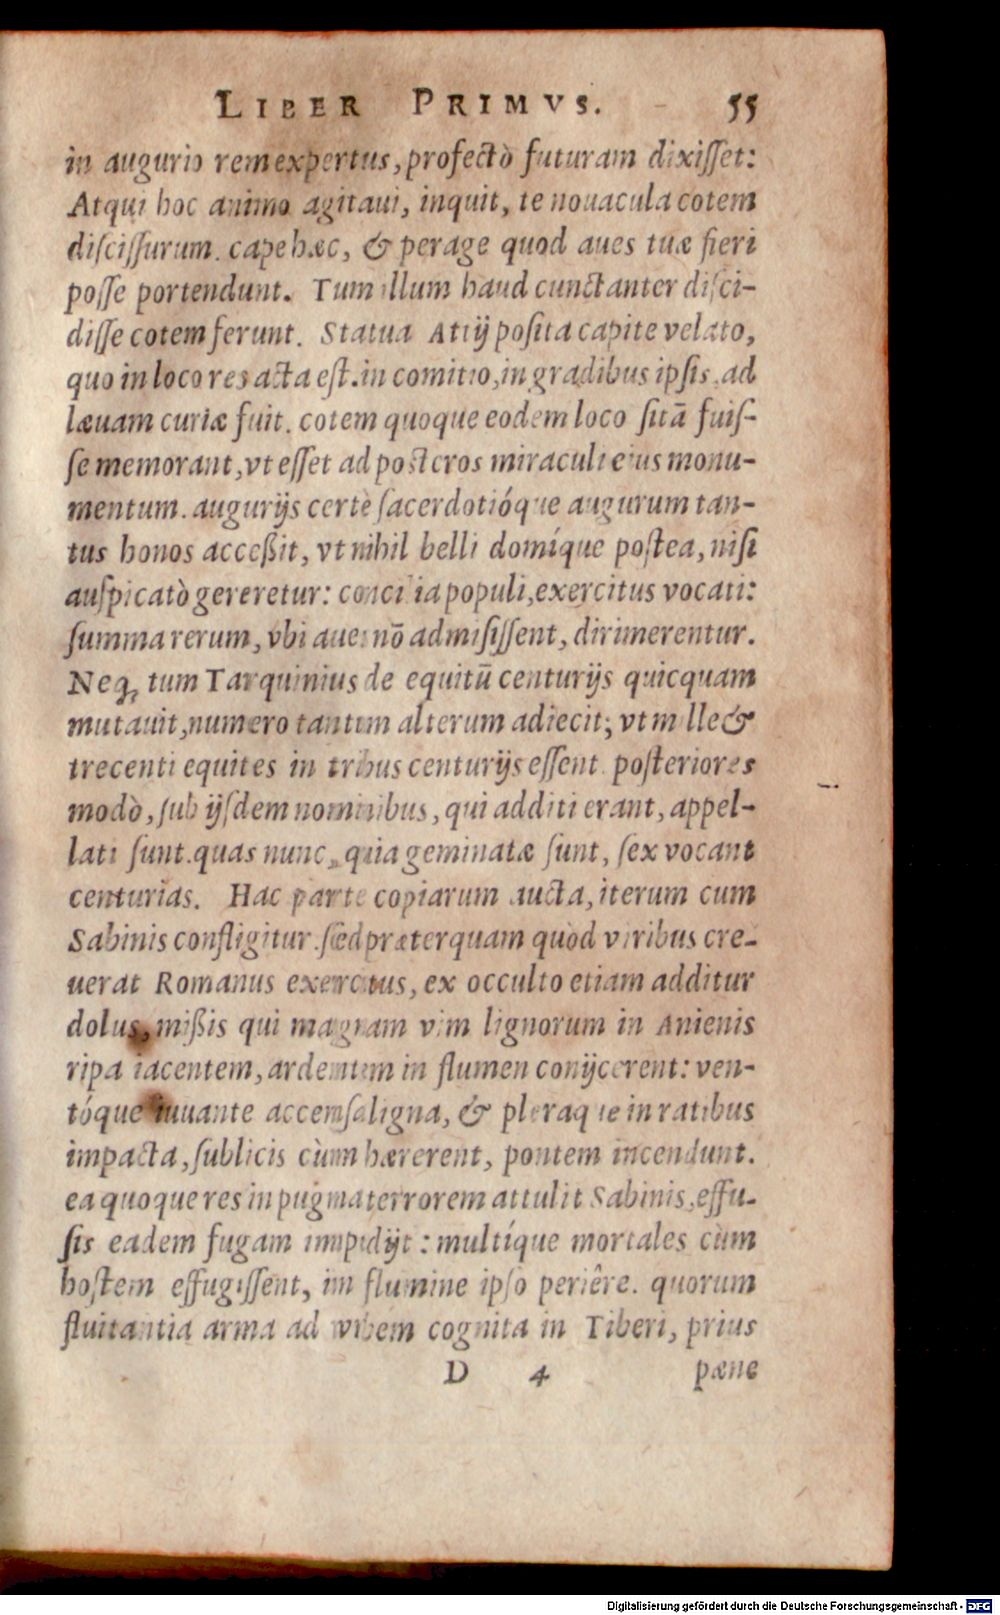 LIBER PRIMVS. 55
in augurio rem expertus, profectò futuram dixiſſet:
Atqui hoc animo agitaui, inquit, te nouacula cotem
diſciſſurum. cape hæc, & perage quod aues tuæ fieri
poſſe portendunt. Tum illum haud cunctanter diſci-
diſſe cotem ferunt. Statua Attij poſita capite velato,
quo in loco res acta eſt. in comitio, in gradibus ipſis, ad
læuam curiæ fuit. cotem quoque eodem loco ſitā fuiſ-
ſe memorant, vt eſſet ad poſteros miraculi eius monu-
mentum. augurijs certè ſacerdotióque augurum tan-
tus honos acceßit, vt nihil belli domíque poſtea, niſi
auſpicatò gereretur: concilia populi, exercitus vocati:
ſumma rerum, vbi aues nō admiſiſſent, dirimerentur.
Neq; tum Tarquinius de equitū centurijs quicquam
mutauit, numero tantum alterum adiecit; vt mille &
trecenti equites in tribus centurijs eſſent. poſteriores
modò, ſub ijſdem nominibus, qui additi erant, appel-
lati ſunt. quas nunc, quia geminatæ ſunt, ſex vocant
centurias. Hac parte copiarum aucta, iterum cum
Sabinis confligitur. ſed præterquam quòd viribus cre-
uerat Romanus exercitus, ex occulto etiam additur
dolus, mißis qui magnam vim lignorum in Anienis
ripa iacentem, ardentem in flumen conijcerent: ven-
tóque iuuante accenſa ligna, & pleraque in ratibus
impacta, ſublicis cùm hærerent, pontem incendunt.
ea quoque res in pugna terrorem attulit Sabinis, effu-
ſis eadem fugam impedijt: multíque mortales cùm
hoſtem effugiſſent, in flumine ipſo periêre. quorum
fluitantia arma ad vrbem cognita in Tiberi, prius
D 4 pæne
Digitalisierung gefördert durch die Deutsche Forschungsgemeinschaft - DFG